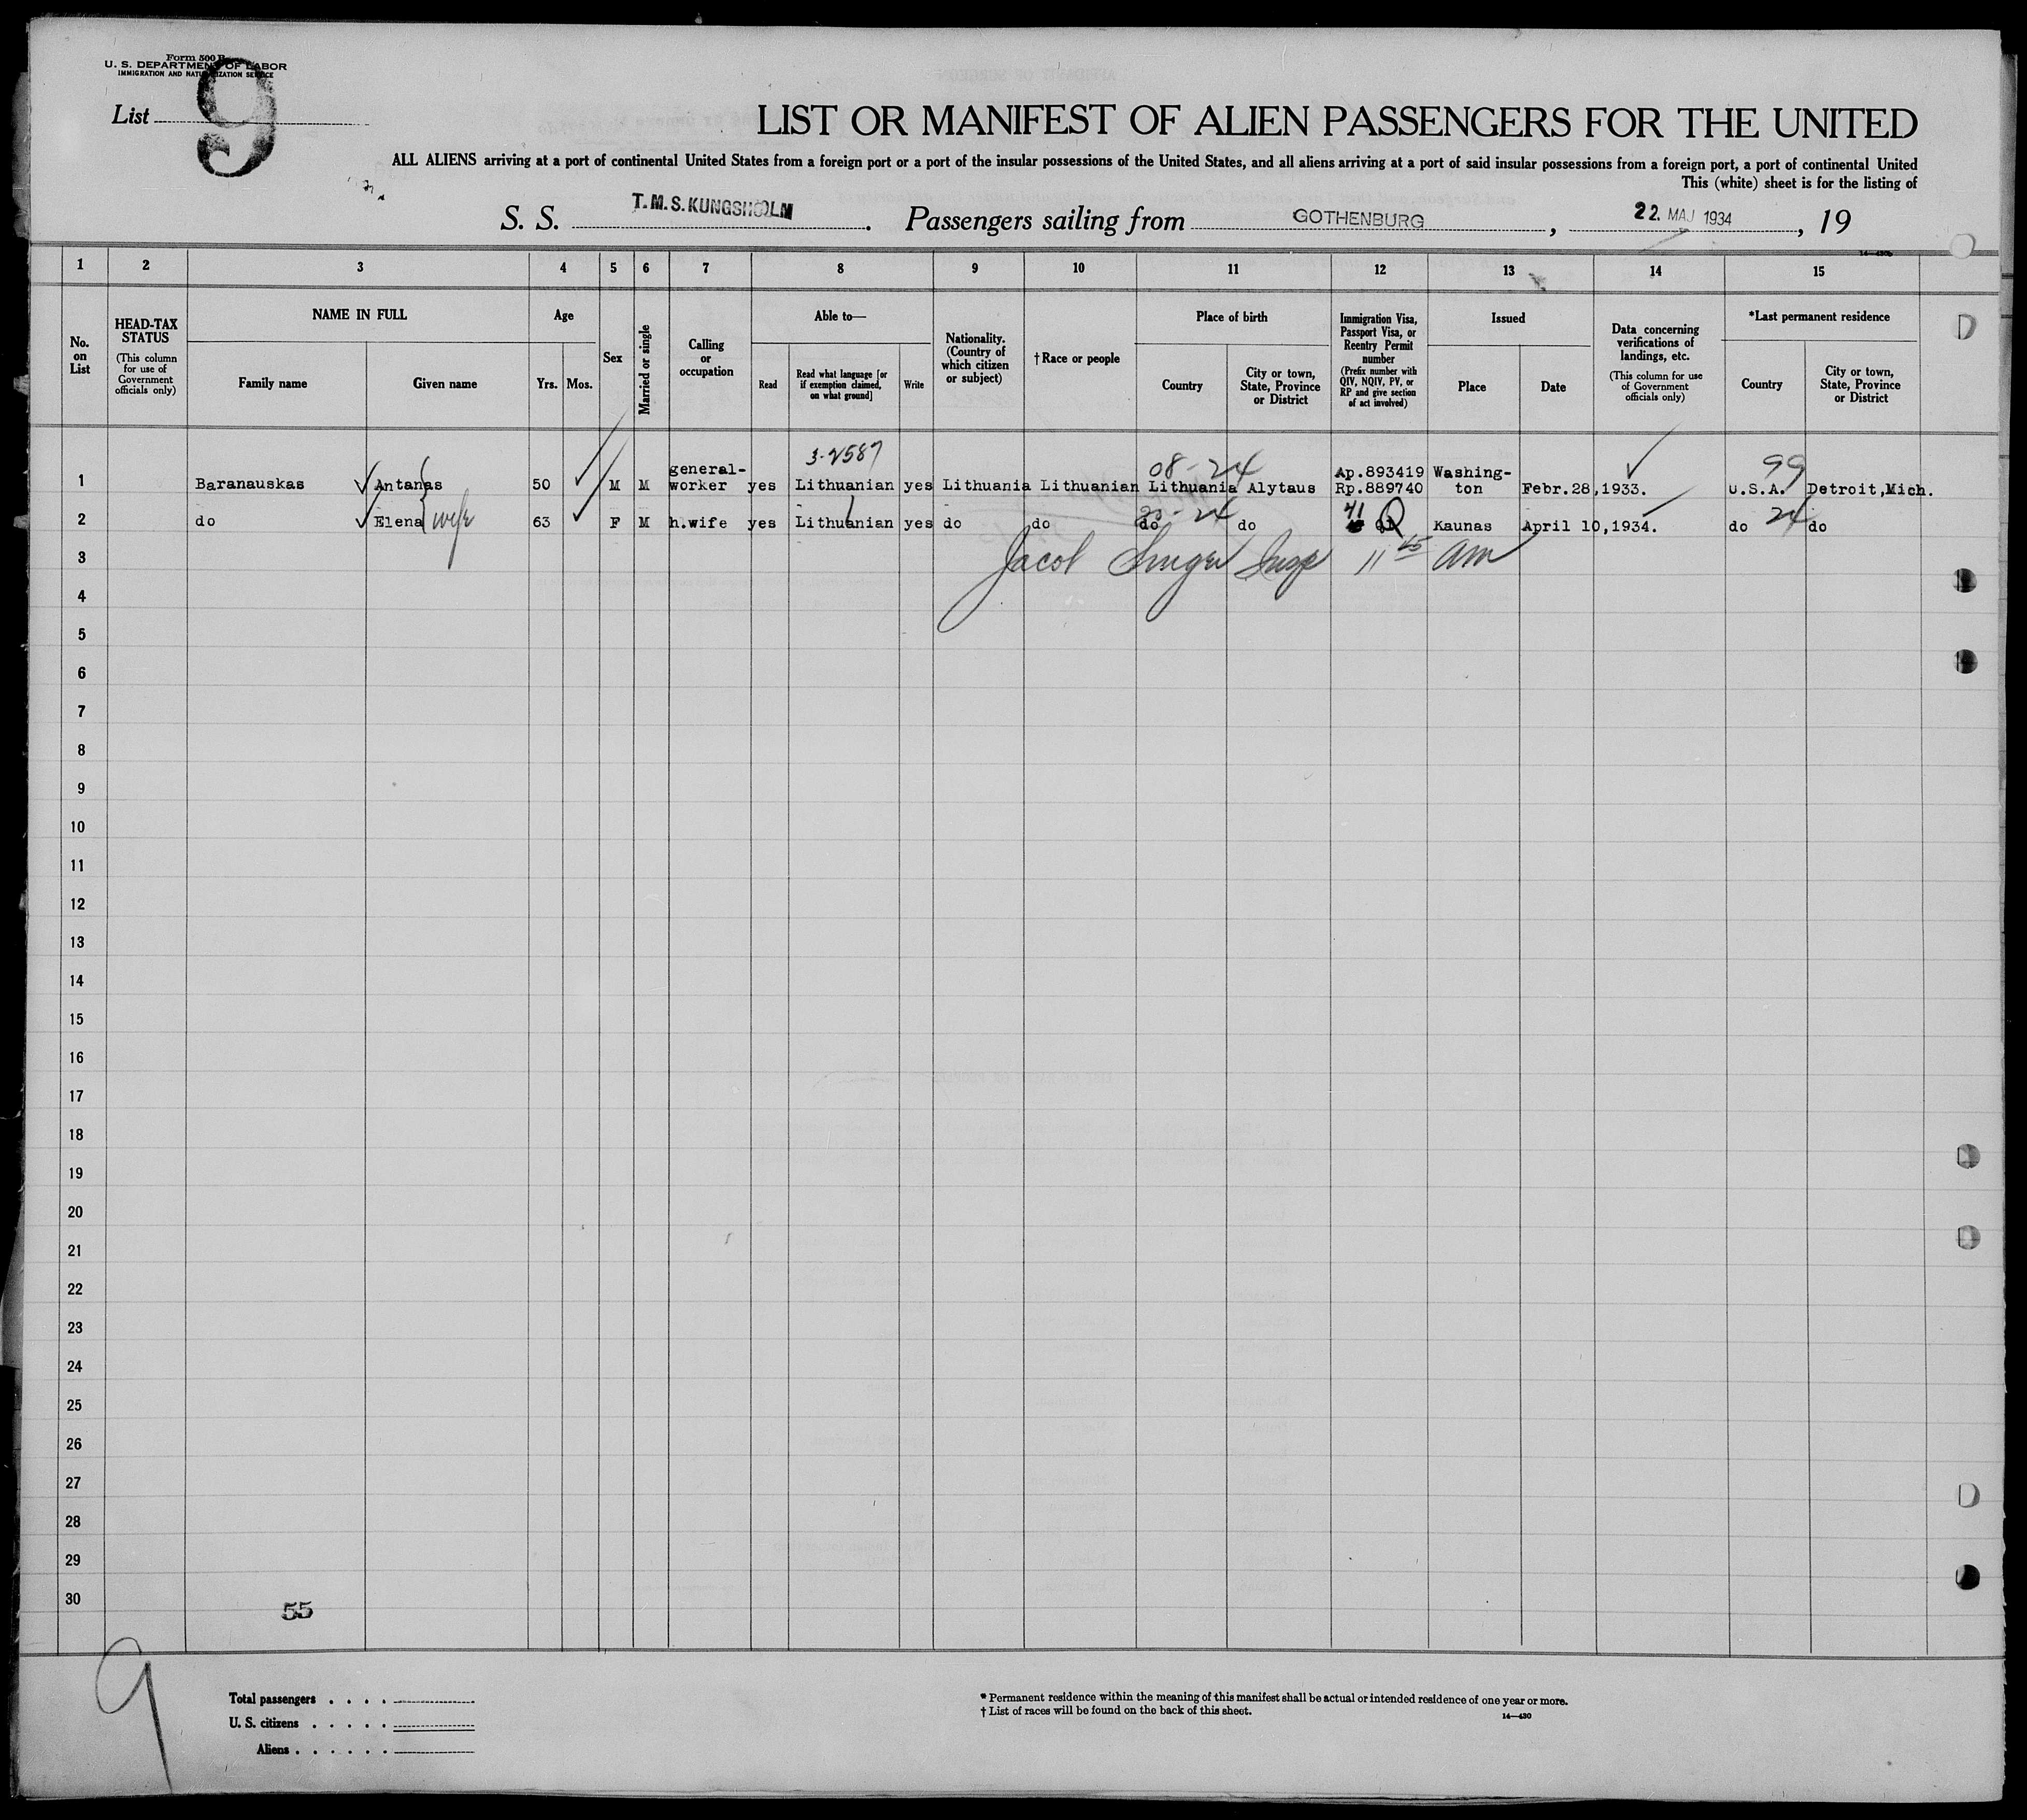 Form 500 B
U. S. DEPARTMENT OF LABOR
IMMIGRATION AND NATURALIZATION SERVICE
List 9
LIST OR MANIFEST OF ALIEN PASSENGERS FOR THE UNITED
ALL ALIENS arriving at a port of continental United States from a foreign port or a port of the insular possessions of the United States, and all aliens arriving at a port of said insular possessions from a foreign port, a port of continental United
This (white) sheet is for the listing of
S. S. T.M.S. KUNGSHOLM. Passengers sailing from GOTHENBURG, 22. MAJ 1934, 19
14—430b
1 2 3 4 5 6 7 8 9 10 11 12 13 14 15
No. on List
HEAD-TAX STATUS (This column for use of Government officials only)
NAME IN FULL
Family name
Given name
Age
Yrs.
Mos.
Sex
Married or single
Calling or occupation
Able to—
Read
Read what language [or if exemption claimed, on what ground]
Write
Nationality. (Country of which citizen or subject)
†Race or people
Place of birth
Country
City or town, State, Province or District
Immigration Visa, Passport Visa, or Reentry Permit number (Prefix number with QIV, NQIV, PV, or RP and give section of act involved)
Issued
Place
Date
Data concerning verifications of landings, etc. (This column for use of Government officials only)
*Last permanent residence
Country
City or town, State, Province or District
3-2587 08-24 99
1 Baranauskas Antanas 50 M M general-worker yes Lithuanian yes Lithuania Lithuanian Lithuania Alytaus Ap.893419 Rp.889740 Washing-ton Febr.28,1933. U.S.A. Detroit,Mich.
2 do Elena wife 63 F M h.wife yes Lithuanian yes do do do do 41 Kaunas April 10,1934. do 24 do
3 Jacob Singer Insp 11 45 am
4
5
6
7
8
9
10
11
12
13
14
15
16
17
18
19
20
21
22
23
24
25
26
27
28
29
30
55
9
Total passengers
U. S. citizens
Aliens
* Permanent residence within the meaning of this manifest shall be actual or intended residence of one year or more.
† List of races will be found on the back of this sheet.
14—430